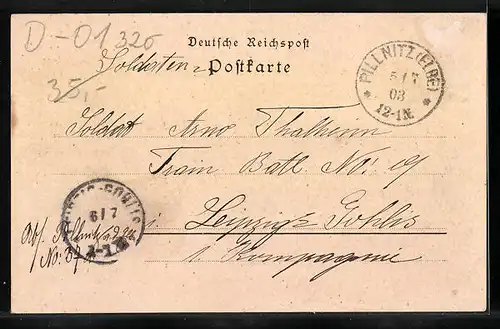 D-01326
35,-
Deutsche Reichspost
Soldaten-Postkarte
PILLNITZ (ELBE)
5/7
03
12-1N.
Soldat Arno Thalheim
Train Batl. No: 19
LEIPZIG-GOHLIS
6/7
i. Leipzig-Gohlis
1. Kompagnie
Abs. Pillnitz a. d. Elbe
No: 37